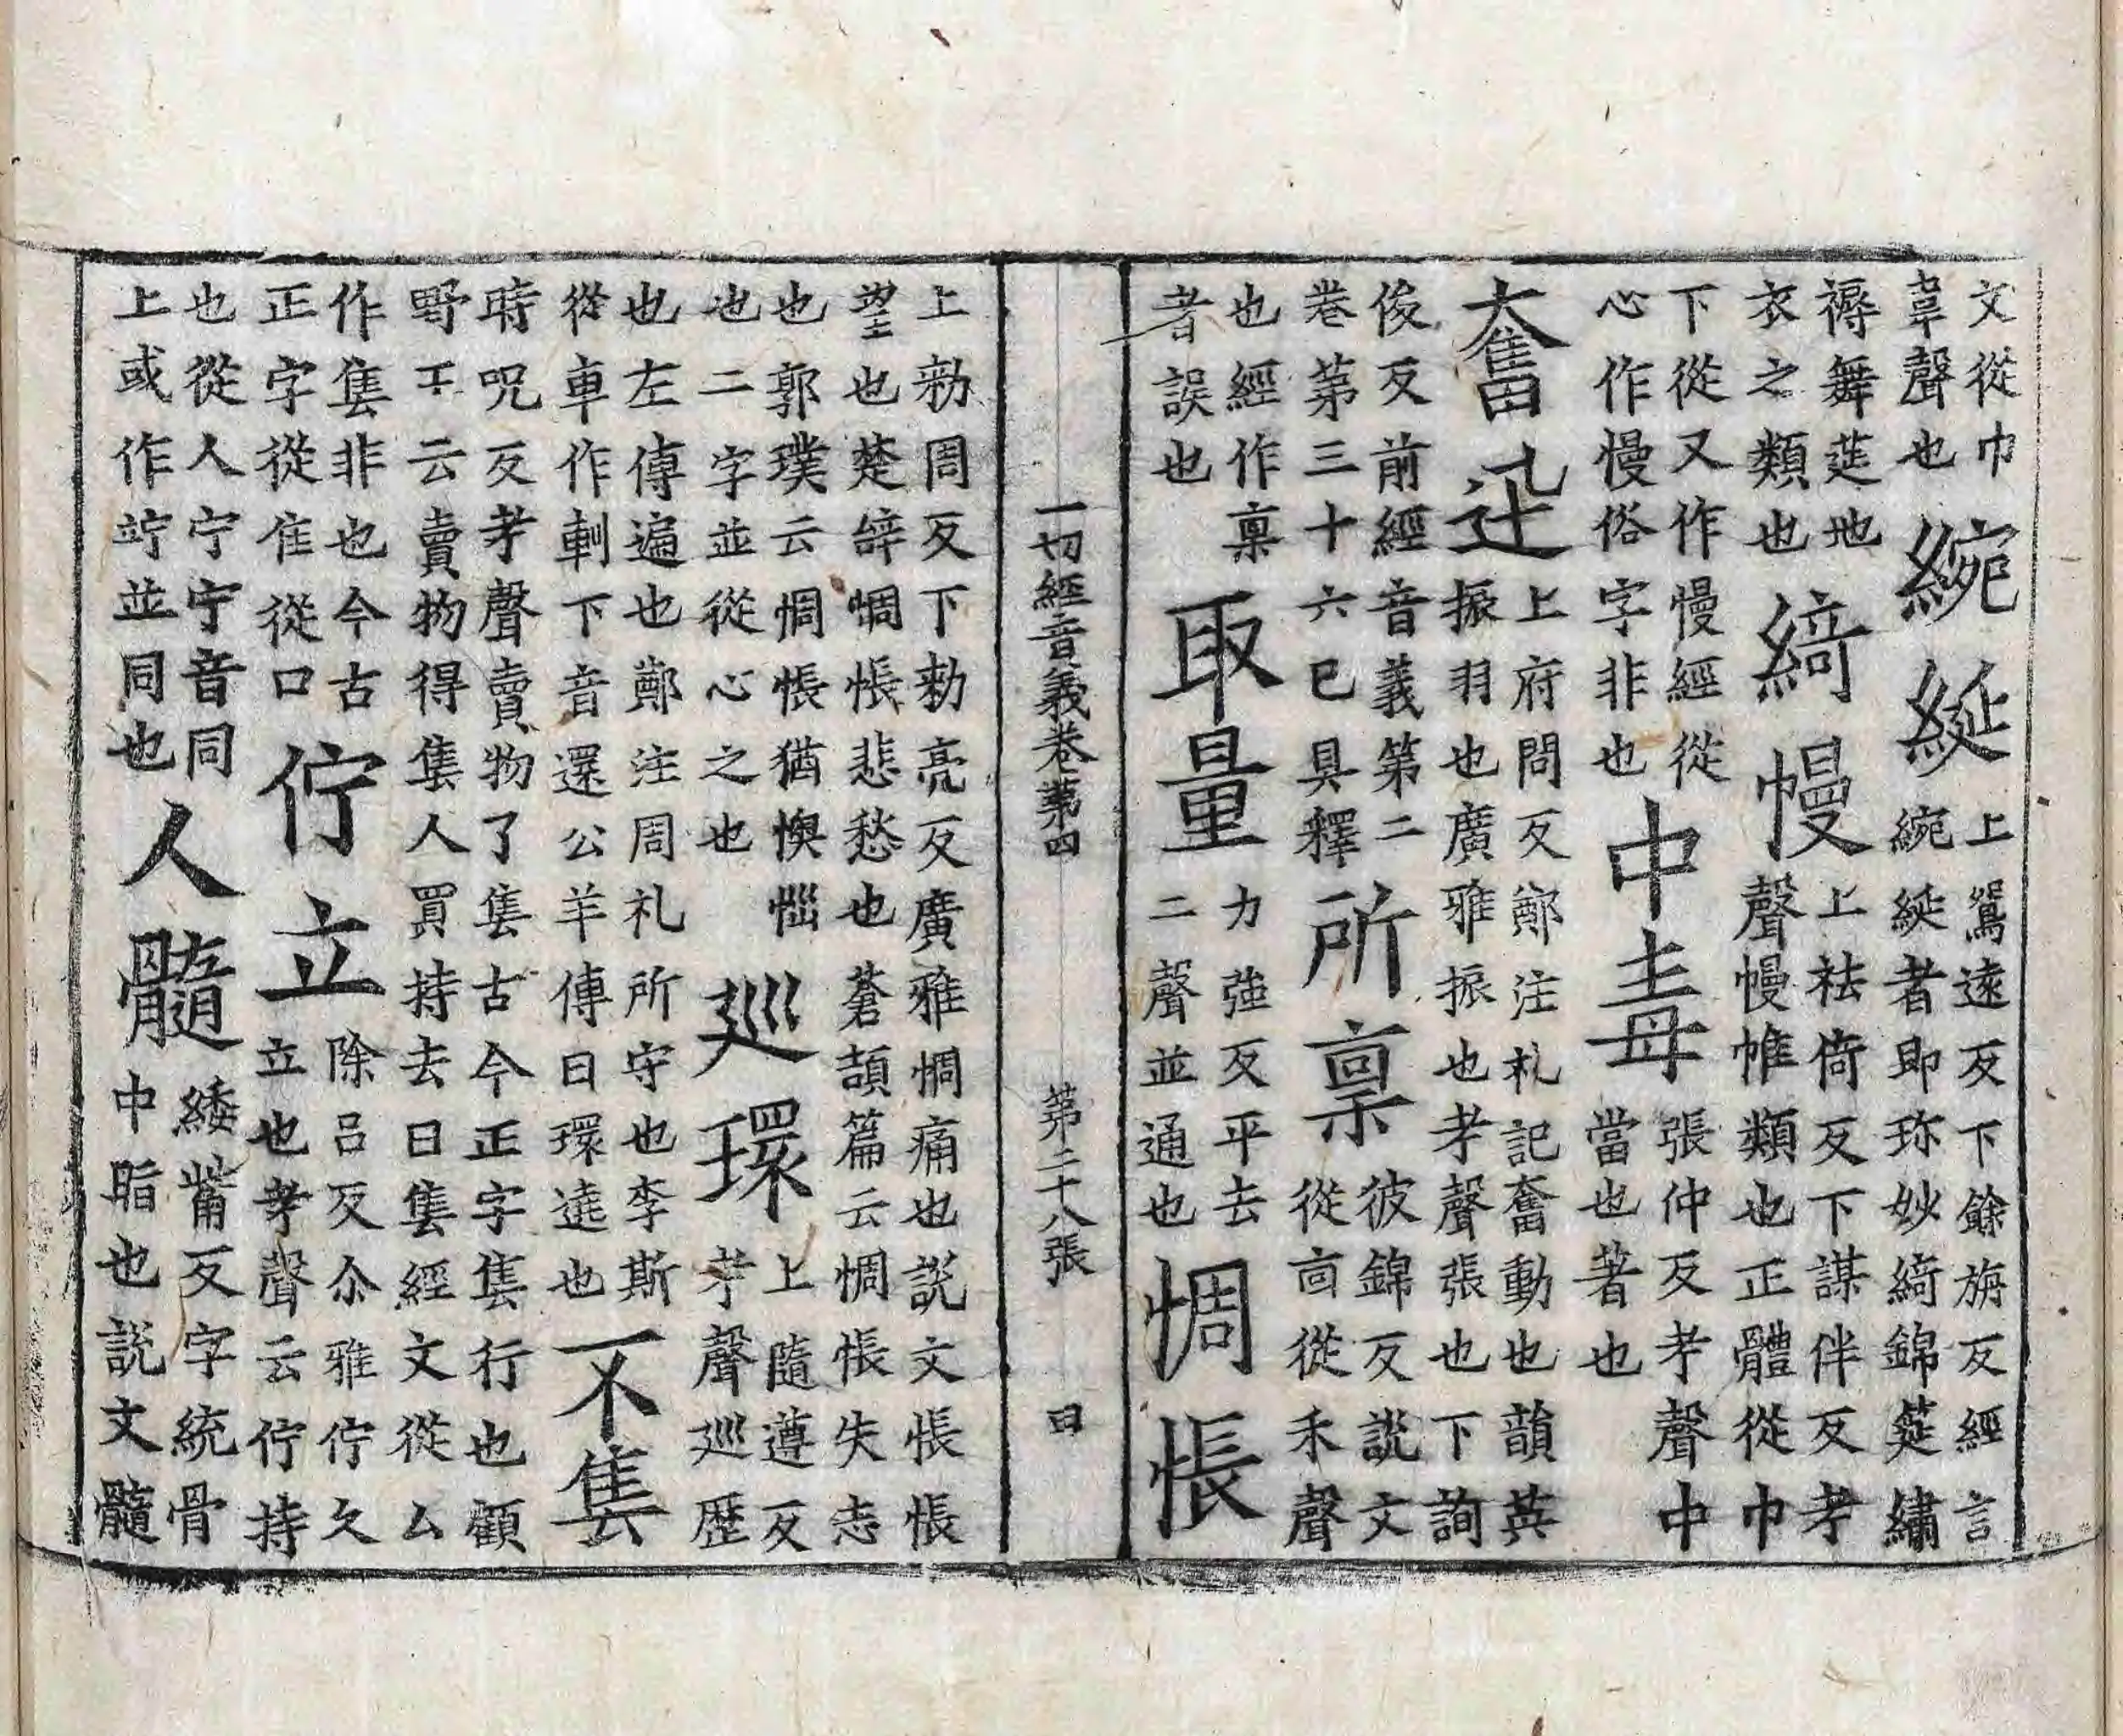 文從巾
韋聲也
綩綖
上鴛遠反下餘旃反經言
綩綖者即珎妙綺錦筵繡
褥舞莚地
衣之類也
綺幔
上袪倚反下謀伴反孝
聲幔帷類也正體從巾
下從又作慢經從
心作慢俗字非也
中毒
張仲反孝聲中
當也著也
奮迅
上府問反鄭注礼記奮動也韻英
振羽也廣雅振也孝聲張也下詢
俊反前經音義第二
卷第三十六已具釋
所稟
彼錦反説文
從㐭從禾聲
也經作禀
者誤也
取量
力強反平去
二聲並通也
惆悵
一切經音義卷第四 第二十八張 曰
上勑周反下勑亮反廣雅惆痛也説文悵悵
望也楚辝惆悵悲愁也蒼頡篇云惆悵失志
也郭璞云惆悵猶懊惱
也二字並從心之也
巡環
上隨遵反
孝聲巡歷
也左傳遍也鄭注周礼所守也李斯
從車作 下音還公羊傳曰環遶也
不售
時呪反孝聲賣物了售古今正字售行也顧
野王云賣物得售人買持去曰售經文從厶
作售非也今古
正字從隹從口
佇立
除呂反尒雅佇久
立也孝聲云佇持
也從人宁宁音同
上或作竚並同也
人髓
緌觜反字統骨
中脂也説文髓